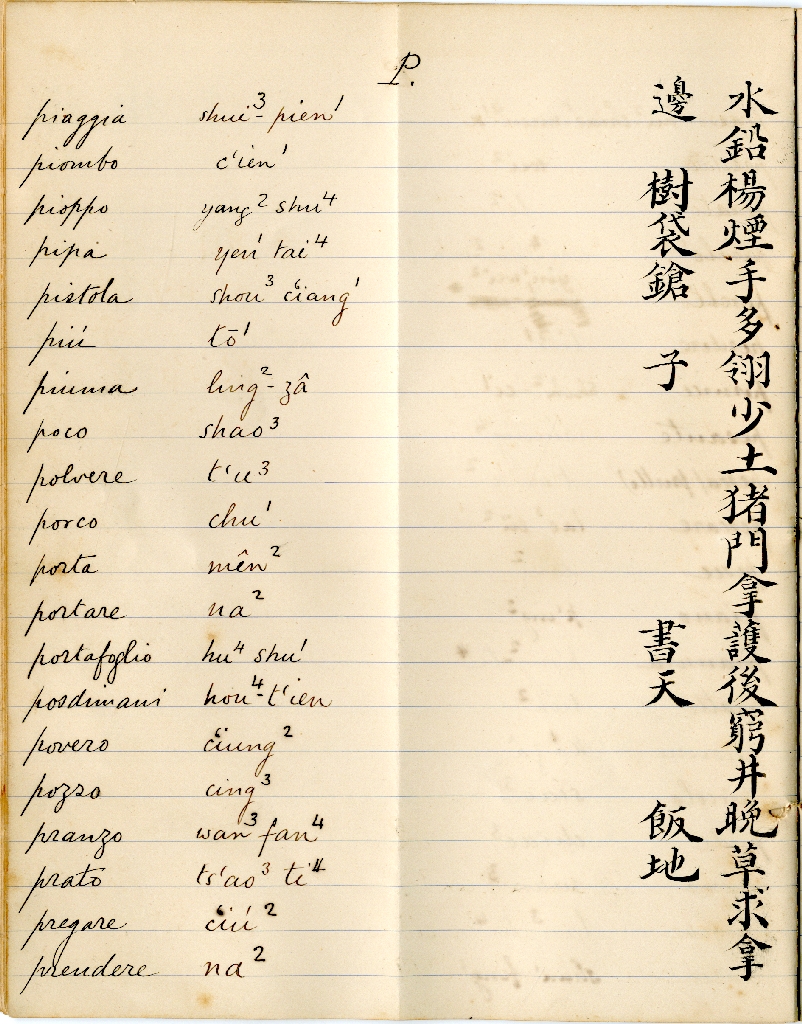 P.
piaggia shui³-pien¹ 水邊
piombo c'ien¹ 鉛
pioppo yang² shu⁴ 楊樹
pipa yen¹ tai⁴ 煙袋
pistola shou³ c'iang¹ 手鎗
piú tō¹ 多
piuma ling²-zâ 翎子
poco shao³ 少
polvere t'u³ 土
porco chu¹ 猪
porta mên² 門
portare na² 拿
portafoglio hu⁴ shu¹ 護書
posdimani hou⁴-t'ien 後天
povero c'iung² 窮
pozzo cing³ 井
pranzo wan³ fan⁴ 晩飯
prato ts'ao³ ti⁴ 草地
pregare c'iú² 求
prendere na² 拿